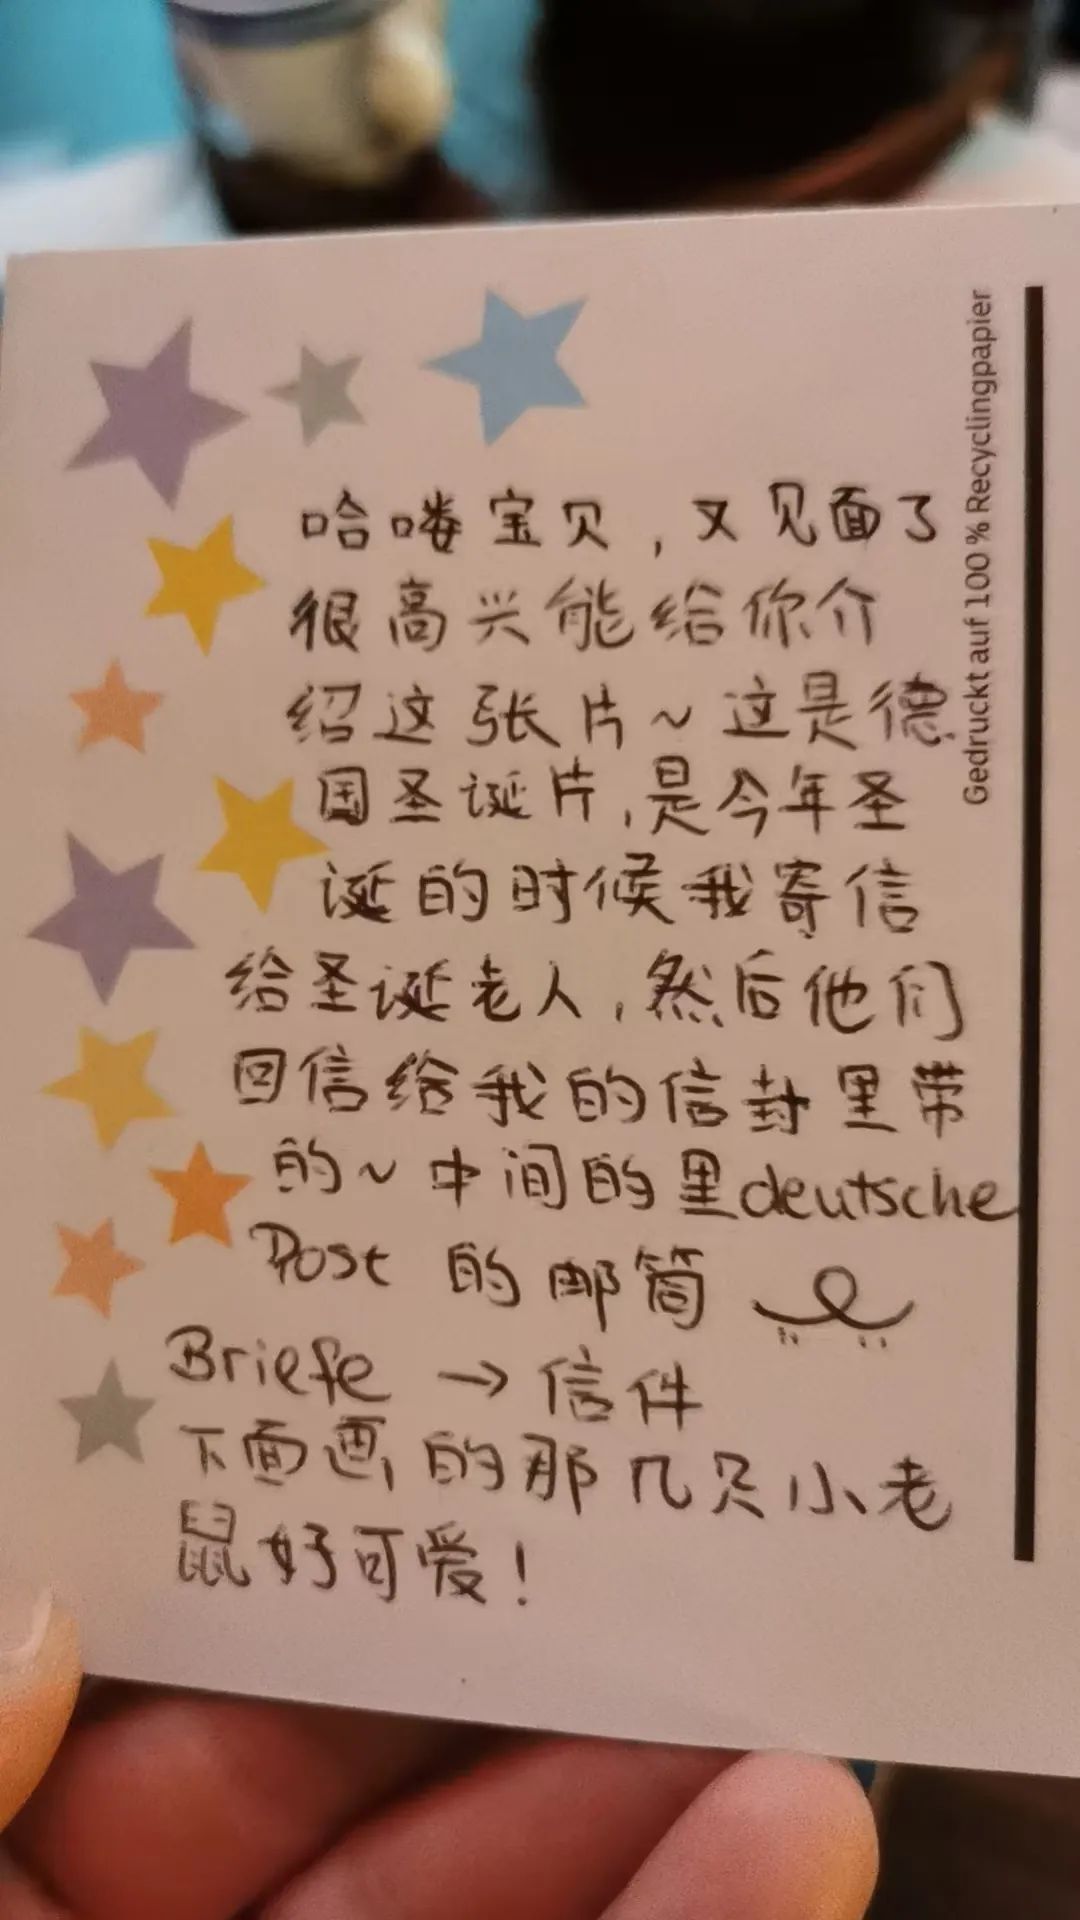 哈喽宝贝，又见面了
很高兴能给你介
绍这张片～这是德
国圣诞片，是今年圣
诞的时候我寄信
给圣诞老人，然后他们
回信给我的信封里带
的～中间的里deutsche
Post 的邮筒
Briefe → 信件
下面画的那几只小老
鼠好可爱！
Gedruckt auf 100 % Recyclingpapier